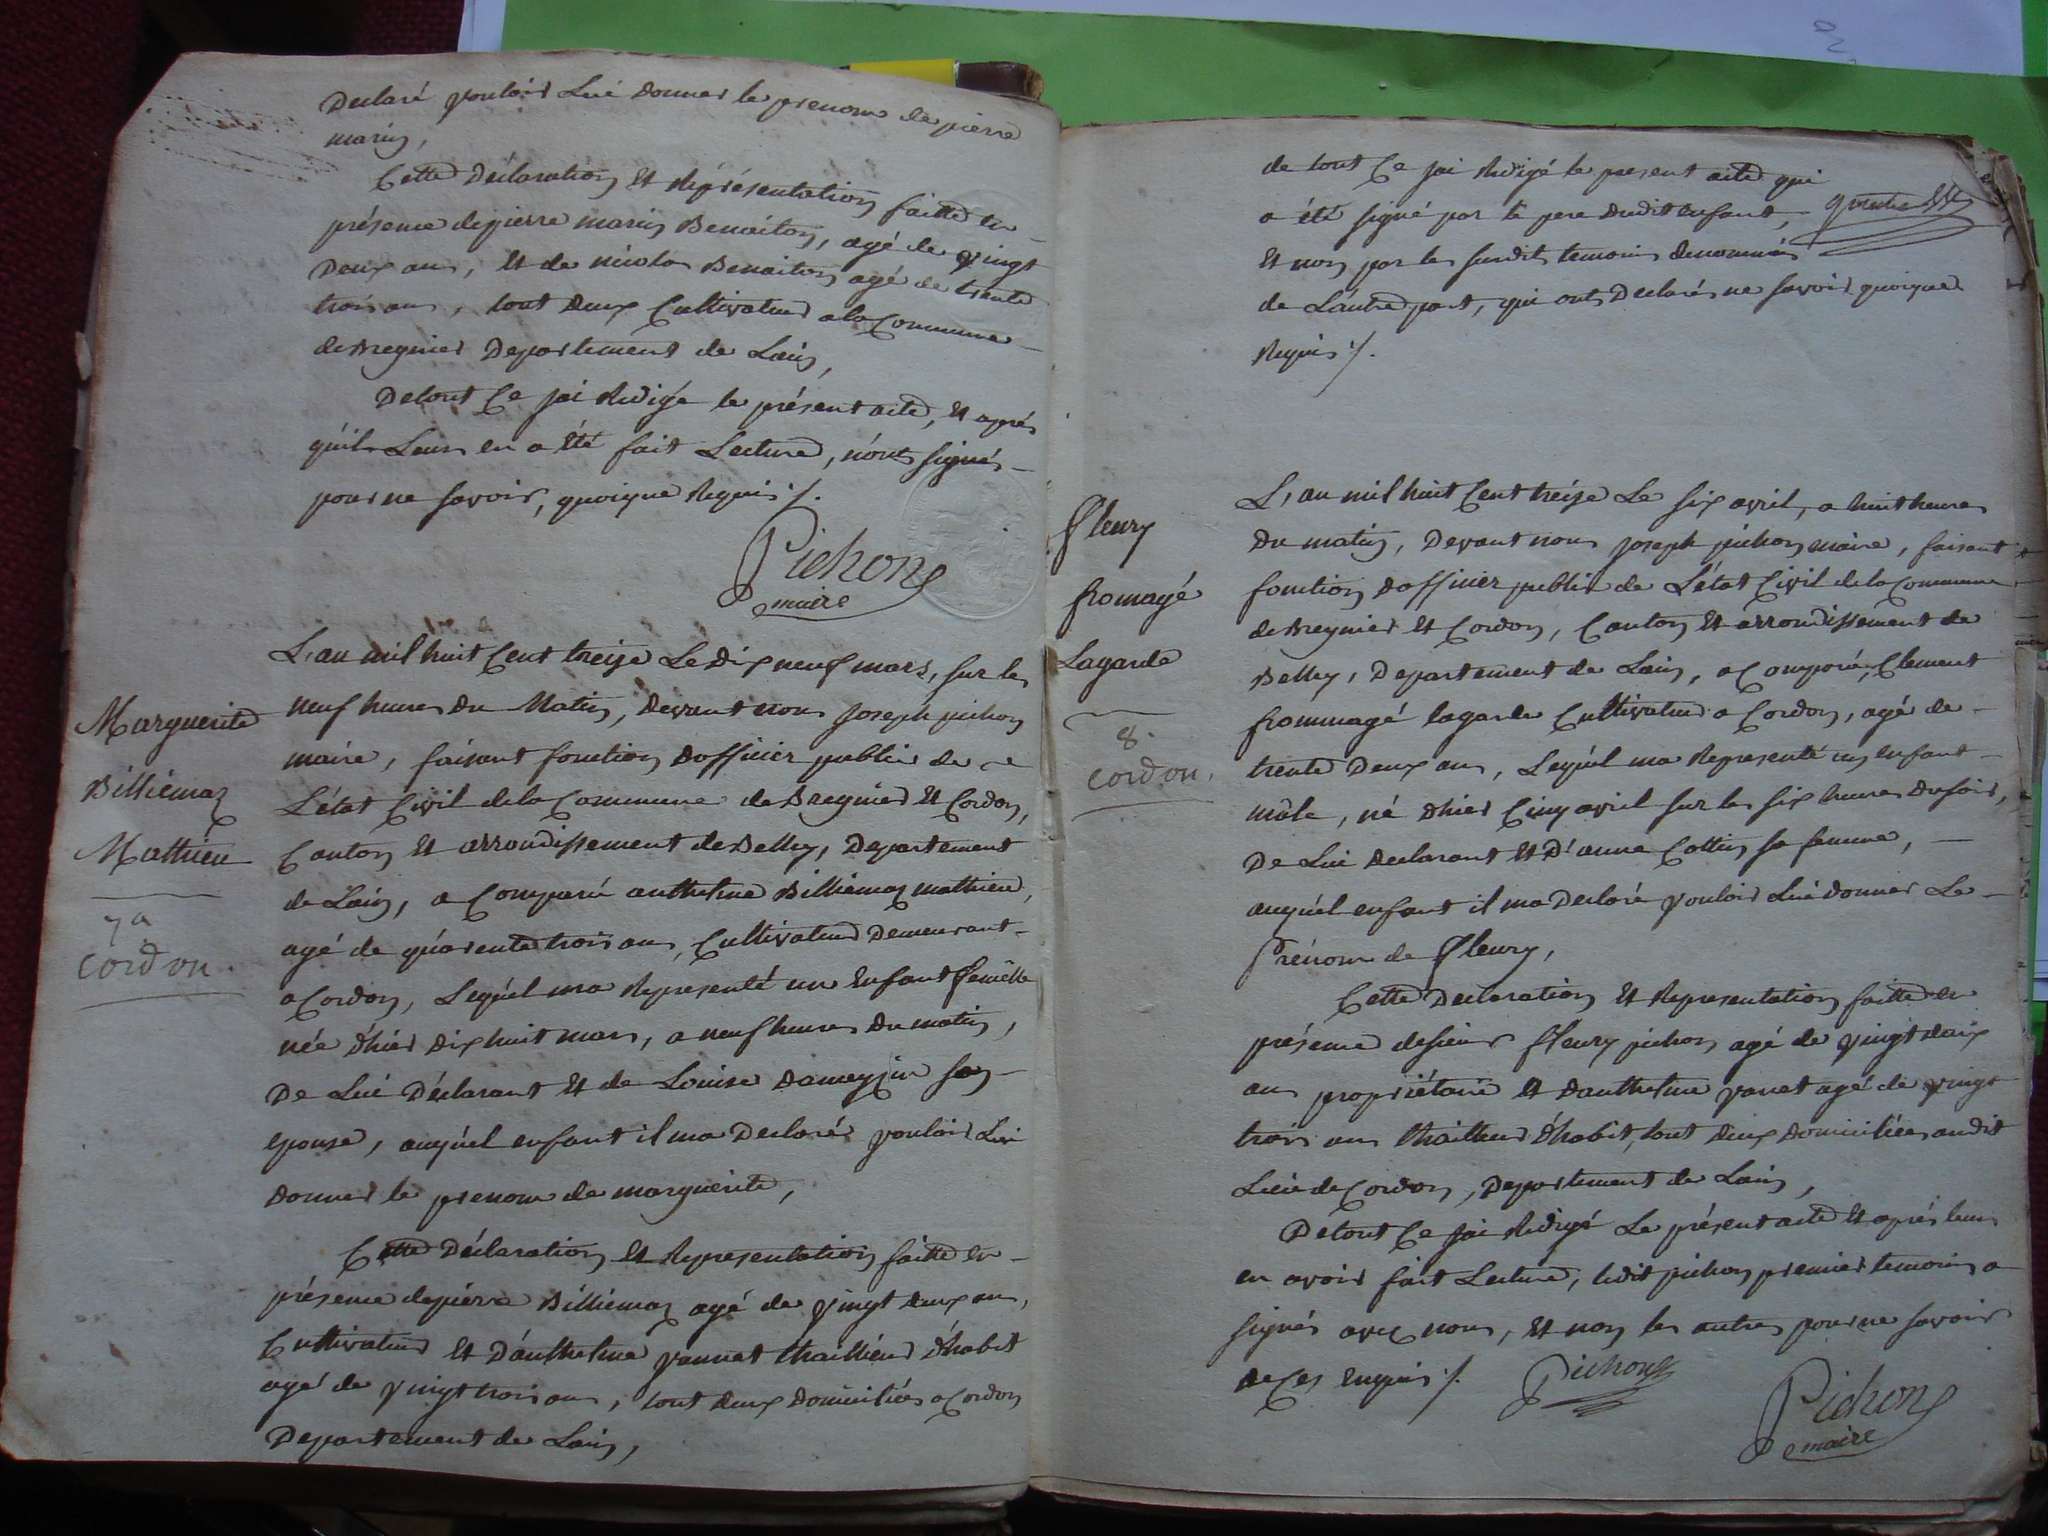 Declaré vouloir Lui donner le prenom de pierre
marin,
Cette Déclaration Et Représentation faitte en
présence de pierre marin Benoiton, agé de vingt
Deux ans, Et de nicolas Benoiton agé de trente
trois ans, tout deux Cultivateur a la Commune
de Bregnier Departement de Lain,
De tout Ce jai Redigé le présent acte, Et après
qu'il Leurs en a Eté fait Lecture, n'ont signés
pour ne savoir, quoique Requis ·/.
Pichon
maire
Marguerite
Billiémaz
Mathieu
7a
Cordon.
L'an mil huit Cent treize Le Dix neuf mars, sur les
neuf heures du Matin, devant nous Joseph pichon
maire, faisant fonction dofficier public de
L'état Civil de la Commune de Bregnier Et Cordon,
Canton Et arrondissement de Belley, Departement
de Lain, a Comparu anthelme Billiémaz mathieu,
agé de quarente trois ans, Cultivateur Demeurant
a Cordon, Lequél ma Representé un Enfant femêlle
née d'hier dix huit mars, a neuf heures du matin,
De Lui Déclarant Et de Louise Dameyjin son
epouse, auquél enfant il ma Declaré vouloir Lui
donner le prenom de marguerite,
Cette Déclaration Et Representation faitte en
présence de piérre Billiémaz agé de vingt deux ans,
Cultivateur Et D'anthelme vannet thaillieur d'habit
agé de vingt trois ans, tout deux domiciliés a Cordon
Departement de Lain,
de tout Ce jai Redigé le present acte qui
a été signé par le pere dudit enfant,
Et non par les susdits temoins denommés
de Lautre part, qui ont Declarés ne savoir quoique
Requis ·/.
fleury
fromagé
Lagarde
8.
Cordon.
L'an mil huit Cent treize Le six avril, a huit heures
du matin, Devant nous joseph pichon maire, faisant
fonction dofficier public de L'état Civil de la Commune
de Bregnier Et Cordon, Canton Et arrondissement de
Belley, Departement de Lain, a Comparu, Clement
frommagé lagarde Cultivateur a Cordon, agé de
trente Deux ans, Lequél ma Representé un enfant
mâle, né d'hier Cinq avril sur les six heures du soir,
De Lui declarant Et D'anne Cottin sa femme,
auquél enfant il ma Declaré vouloir Lui donner Le
Prénom de fleury,
Cette Declaration Et Representation faitte en
présence de sieur fleury pichon agé de vingt deux
ans propriétaire Et danthelme vanet agé de vingt
trois ans thailleur d'habit, tout deux domiciliées audit
Lieu de Cordon, Departement de Lain,
De tout Ce jai Redigé Le présent acte Et aprés leurs
en avoir fait Lecture, ledit pichon premier temoin a
signés avec nous, Et non les autres pour ne savoir
de Ces Enquis ·/. Pichon
Pichon
maire